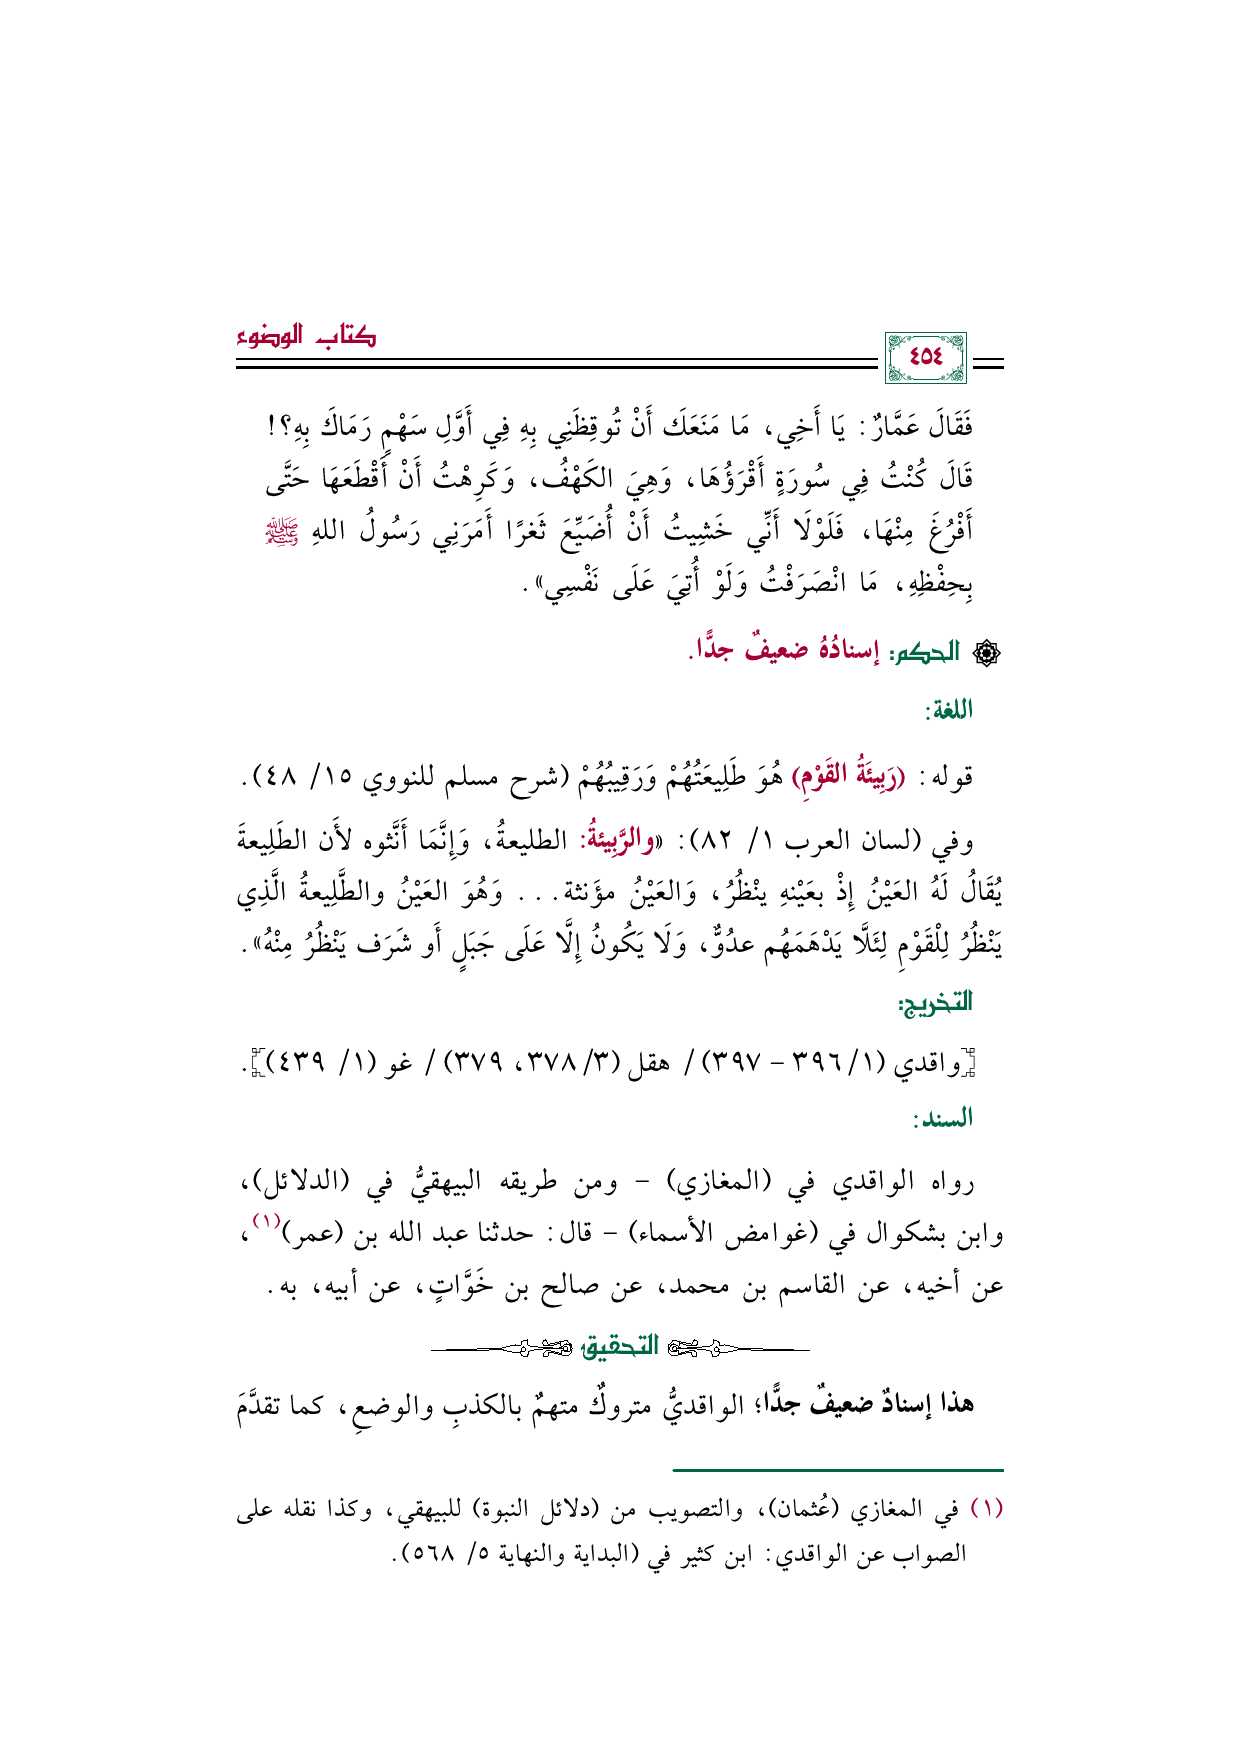 كتاب الوضوء
٤٥٤
فَقَالَ عَمَّارٌ: يَا أَخِي، مَا مَنَعَكَ أَنْ تُوقِظَنِي بِهِ فِي أَوَّلِ سَهْمٍ رَمَاكَ بِهِ؟!
قَالَ كُنْتُ فِي سُورَةٍ أَقْرَؤُهَا، وَهِيَ الكَهْفُ، وَكَرِهْتُ أَنْ أَقْطَعَهَا حَتَّى
أَفْرُغَ مِنْهَا، فَلَوْلَا أَنِّي خَشِيتُ أَنْ أُضَيِّعَ ثَغرًا أَمَرَنِي رَسُولُ اللهِ ﷺ
بِحِفْظِهِ، مَا انْصَرَفْتُ وَلَوْ أُتِيَ عَلَى نَفْسِي».
الحكم: إسنادُهُ ضعيفٌ جدًّا.
اللغة:
قوله: (رَبِيئَةُ القَوْمِ) هُوَ طَلِيعَتُهُمْ وَرَقِيبُهُمْ (شرح مسلم للنووي ١٥/ ٤٨).
وفي (لسان العرب ١/ ٨٢): «والرَّبِيئةُ: الطليعةُ، وَإِنَّمَا أَنَّثوه لأَن الطَلِيعةَ
يُقَالُ لَهُ العَيْنُ إِذْ بعَيْنهِ ينْظُرُ، وَالعَيْنُ مؤَنثة... وَهُوَ العَيْنُ والطَّلِيعةُ الَّذِي
يَنْظُرُ لِلْقَوْمِ لِئَلَّا يَدْهَمَهُم عدُوٌّ، وَلَا يَكُونُ إِلَّا عَلَى جَبَلٍ أَو شَرَف يَنْظُرُ مِنْهُ».
التخريج:
[واقدي (١/ ٣٩٦ - ٣٩٧)/ هقل (٣/ ٣٧٨، ٣٧٩)/ غو (١/ ٤٣٩)].
السند:
رواه الواقدي في (المغازي) - ومن طريقه البيهقيُّ في (الدلائل)،
وابن بشكوال في (غوامض الأسماء) - قال: حدثنا عبد الله بن (عمر)(١)،
عن أخيه، عن القاسم بن محمد، عن صالح بن خَوَّاتٍ، عن أبيه، به.
التحقيق
هذا إسنادٌ ضعيفٌ جدًّا؛ الواقديُّ متروكٌ متهمٌ بالكذبِ والوضعِ، كما تقدَّمَ
(١) في المغازي (عُثمان)، والتصويب من (دلائل النبوة) للبيهقي، وكذا نقله على
الصواب عن الواقدي: ابن كثير في (البداية والنهاية ٥/ ٥٦٨).